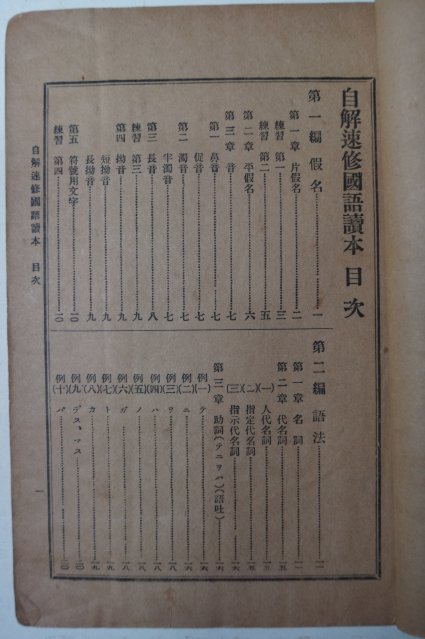 自解速修國語讀本 目次
第一編 假名………一
第一章 片假名………二
練習 第一………三
練習 第二………五
第二章 平假名………六
第三章 音………七
第一 鼻音………七
促音………七
第二 濁音………七
半濁音………七
第三 長音………八
練習 第三………九
第四 拗音………九
短拗音………九
長拗音………九
第五 符號用文字………一〇
練習 第四………一〇
第二編 語法………一一
第一章 名詞………一一
第二章 代名詞………一五
(一) 人代名詞………一五
(二) 指定代名詞………一五
(三) 指示代名詞………一六
第三章 助詞(テニヲハ)(語吐)………一六
例(一) ケ………一六
例(二) ニ………一六
例(三) ヲ………一八
例(四) ハ………一八
例(五) ノ………一八
例(六) ガ………一八
例(七) ト………一九
例(八) カ………一九
例(九) デス、マス………二〇
例(十) バ………二〇
自解速修國語讀本 目次
一